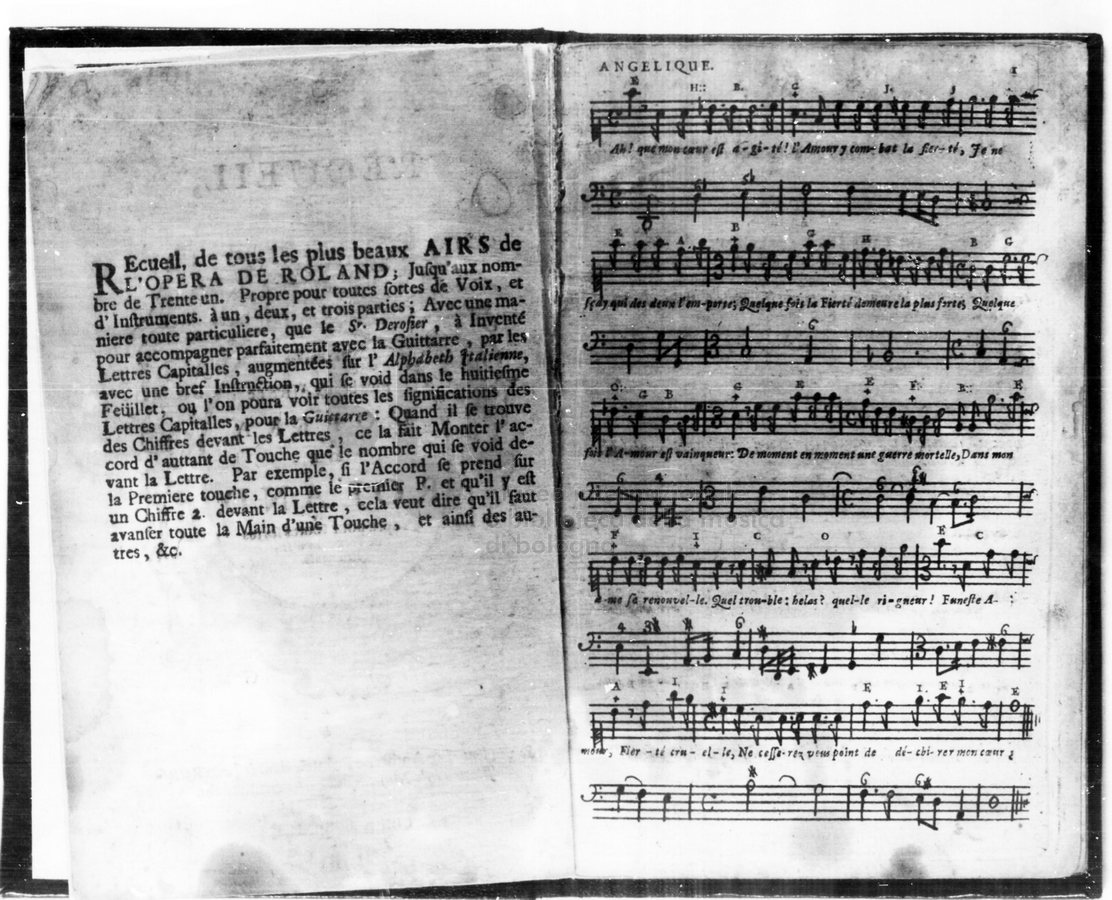 REcueil, de tous les plus beaux AIRS de
L'OPERA DE ROLAND; Jusqu'aux nom-
bre de Trente un. Propre pour toutes sortes de Voix, et
d'Instruments. à un, deux, et trois parties; Avec une ma-
niere toute particuliere, que le Sr. Derosier, à Inventé
pour accompagner parfaitement avec la Guittarre, par les
Lettres Capitalles, augmentées sur l'Alphabeth Italienne,
avec une bref Instruction, qui se void dans le huitiesme
Feüillet, ou l'on poura voir toutes les significations des
Lettres Capitalles, pour la Guittarre: Quand il se trouve
des Chiffres devant les Lettres, ce la fait Monter l'ac-
cord d'auttant de Touche que le nombre qui se void de-
vant la Lettre. Par exemple, si l'Accord se prend sur
la Premiere touche, comme le premier P. et qu'il y est
un Chiffre 2. devant la Lettre, cela veut dire qu'il faut
avanser toute la Main d'une Touche, et ainsi des au-
tres, &c.
ANGELIQUE.
Ah! que mon cœur est a-gi-té! l'Amour y com-bat la fier-té, Je ne
sçay qui des deux l'em-porte; Quelque fois la Fierté demeure la plus forte; Quelque
fois l'A-mour est vainqueur: De moment en moment une guerre mortelle, Dans mon
a-me se renouvel-le. Quel trou-ble: helas? quel-le ri-gueur! Funeste A-
mour, Fier-té cru-el-le, Ne cesse-rez vous point de dé-chi-rer mon cœur?
biblioteca della musica
di bologna